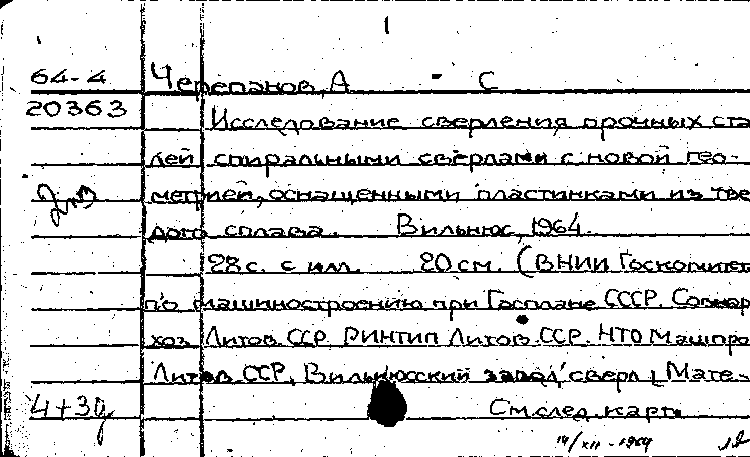 1
64-4 Черепанов, А - С
20363 Исследование сверления прочных ста
лей спиральными сверлами с новой гео-
метрией, оснащенными пластинками из тве
дого сплава. Вильнюс, 1964.
28 с. с илл. 20 см. (ВНИИ Госкомитет
по машиностроению при Госплане СССР. Совнар
хоз Литов. ССР. РИНТИП Литов. ССР. НТО Машпро
Литов ССР. Вильнюсский завод сверл). Мате-
4+3д См. след. карт.
14/XII-1964